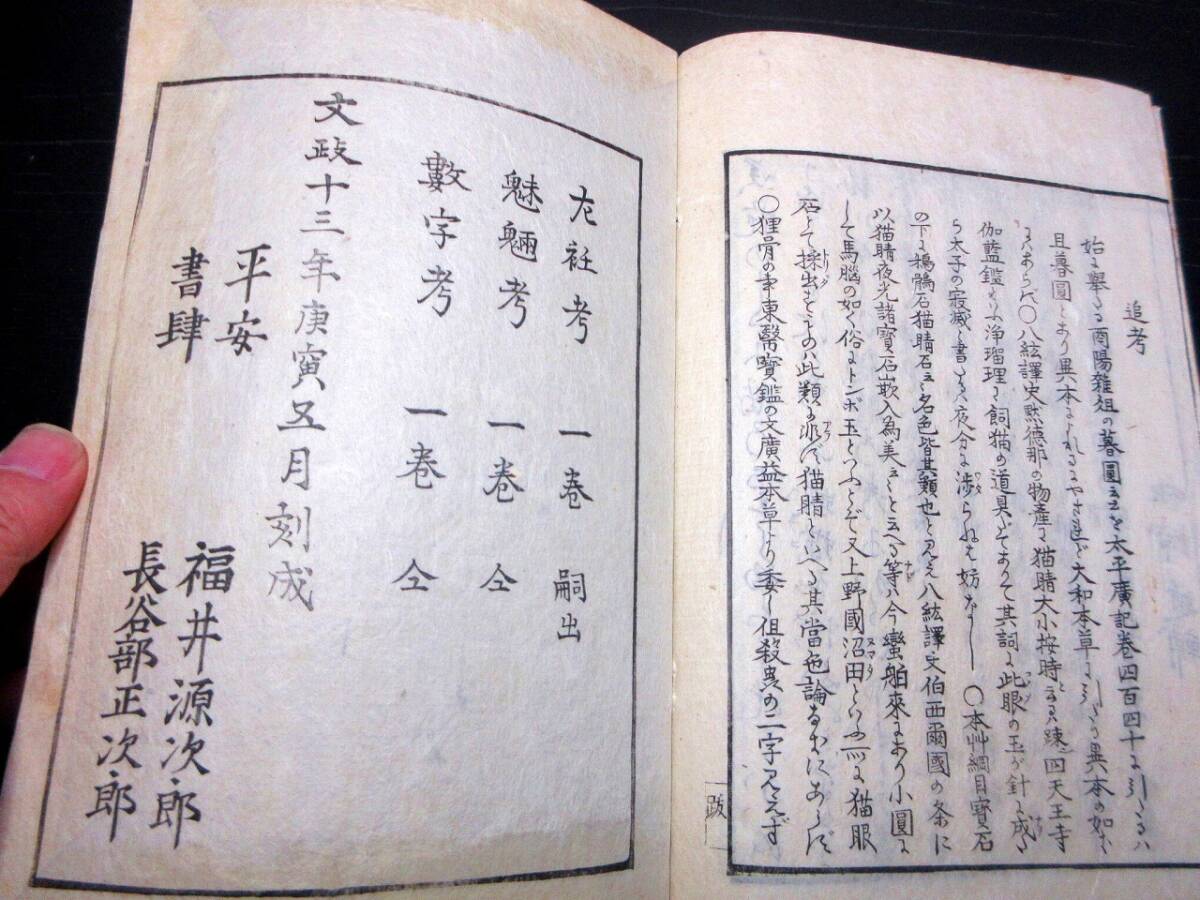 追考
始に擧たる酉陽雑俎の暮圓云々を太平廣記巻四百四十に引たるハ
且暮圓とあり異本によれるにやされど大和本草に引たる異本の如く
にあらバ〇八紘譯史黙德那の物産に猫睛大小按時云々疎
四天王寺
伽藍鑑に浄瑠理に飼猫の道具とてありて其詞に此眼の玉が針に成た
ら太子の寂滅と書るハ夜分に渉らねば妨なし
〇本艸綱目寶石
の下に鴉鶻石猫睛石云々名色皆其類也と見え八紘譯史伯西爾國の条に
以猫睛夜光諸寶石嵌入為美云々と云へる等ハ今蠻舶來にあり小圓に
して馬腦の如く俗にトンボ玉といふとぞ又上野國沼田といふ所に猫眼
石とて採出すものハ此類に非ず猫睛といへる其當也論るまでにあらず
〇狸骨の事東醫寶鑑の文廣益本草より委し但殺蟲の二字見えず
跋
左社考 一巻 嗣出
魅魎考 一巻 仝
數字考 一巻 仝
文政十三年庚寅五月刻成
平安
書肆
福井源次郎
長谷部正次郎